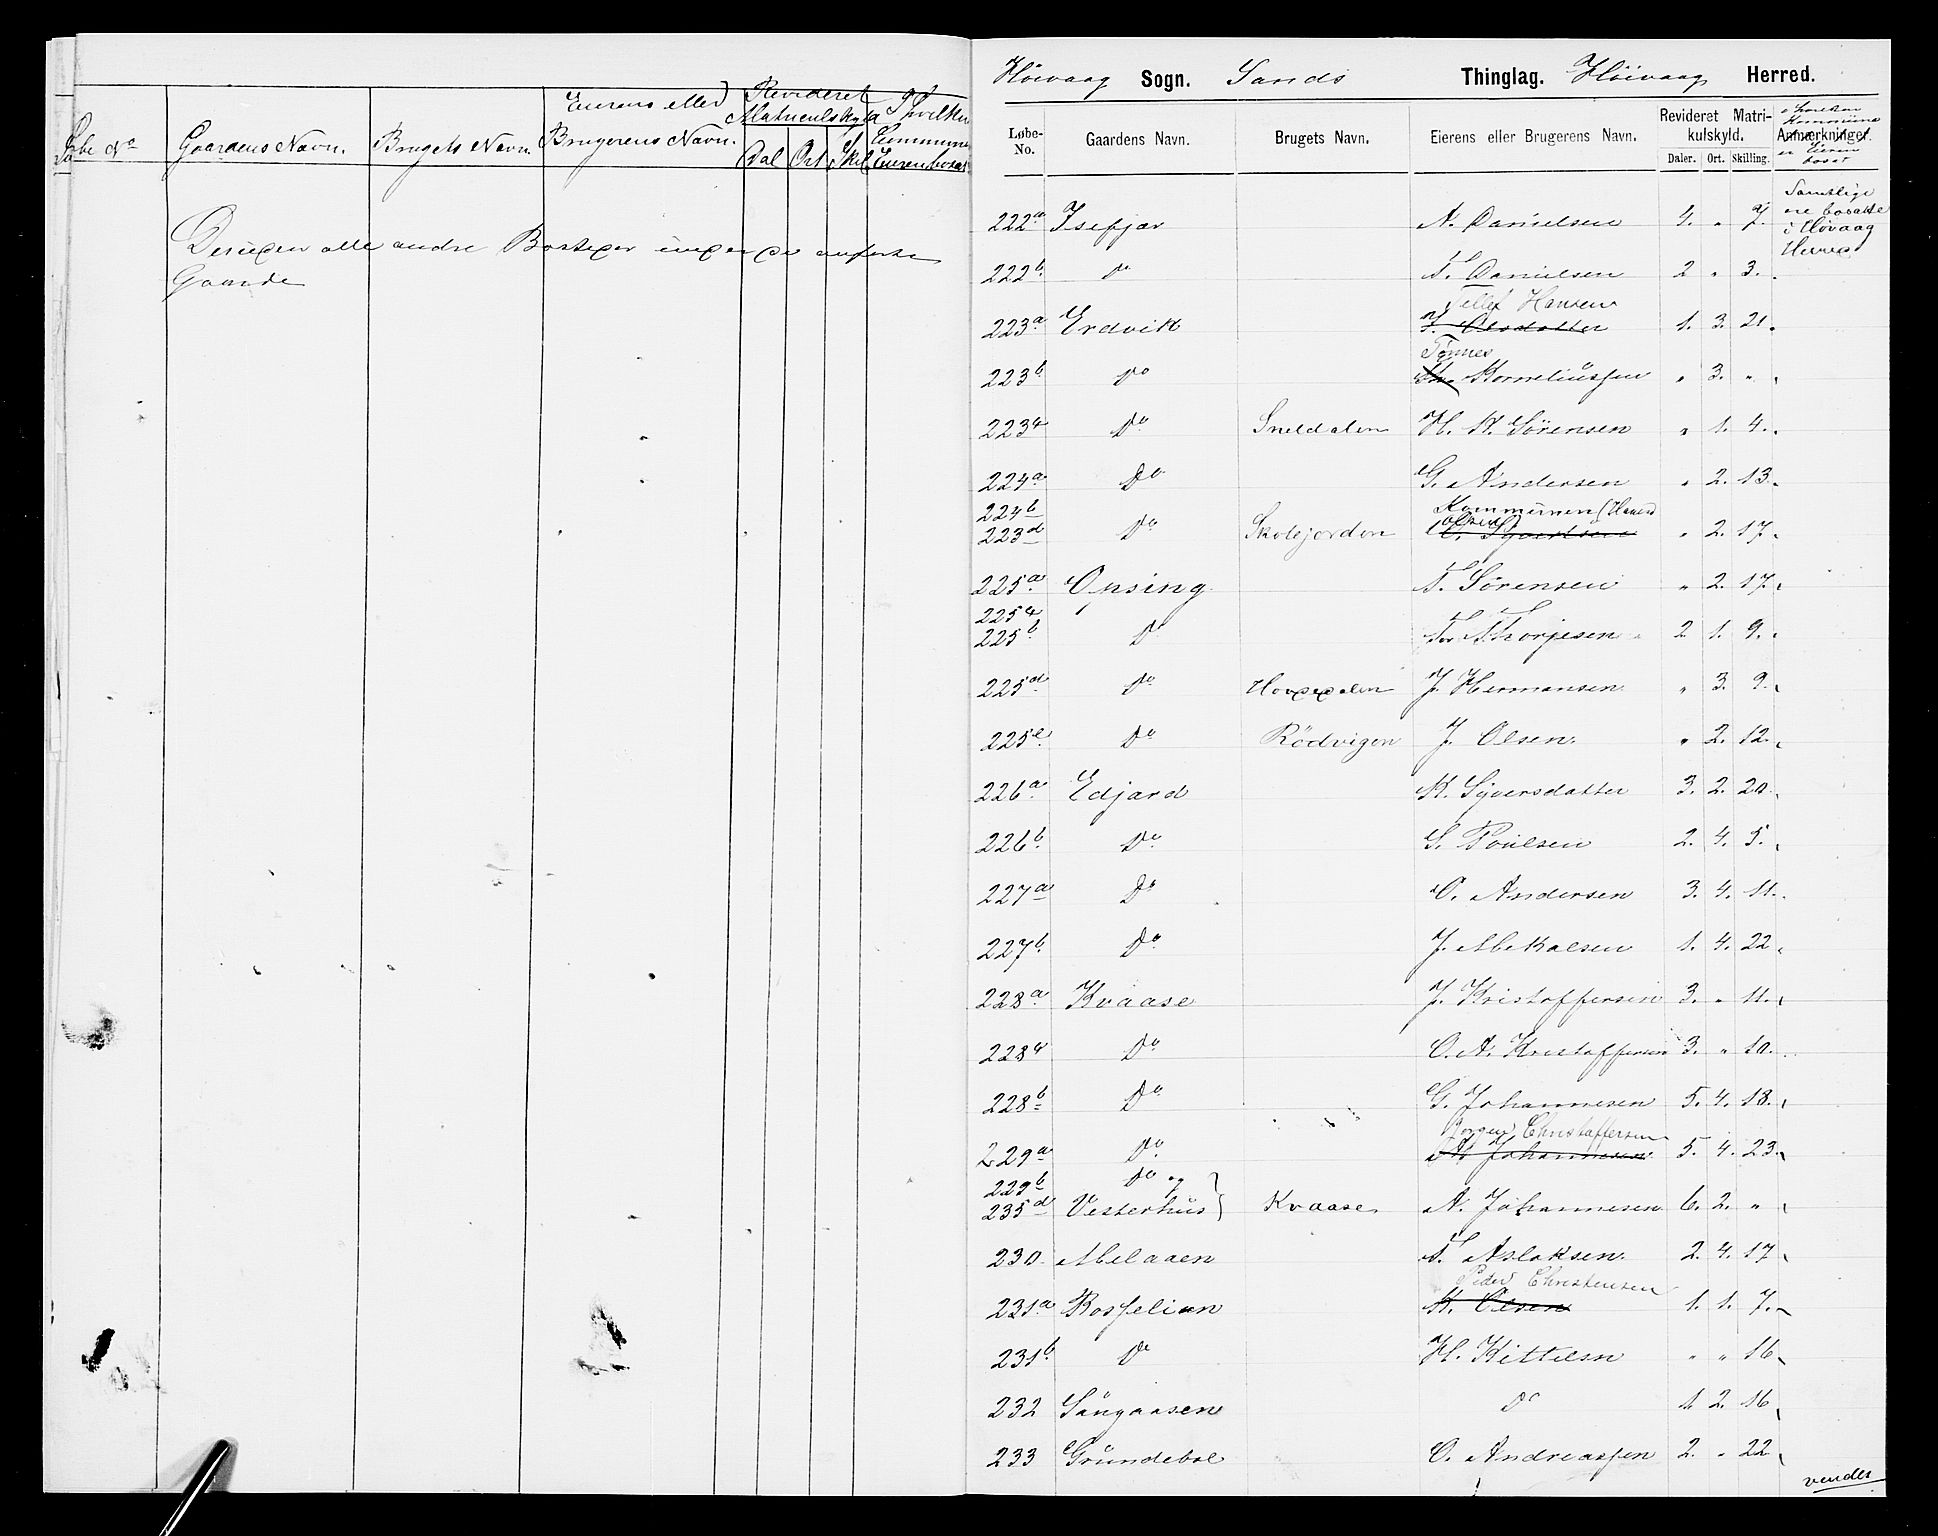 Løbe No Gaardens Navn. Brugets Navn. Eierens eller Brugerens Navn. Revideret Matriculskyld Dal Ort Skil I hvilken Commune Eieren bosat
Desuden alle andre Bosteder under de anførte
Gaarde
Höivaag Sogn. Sands Thinglag. Höivaag Herred.
Løbe-No. Gaardens Navn. Brugets Navn. Eierens eller Brugerens Navn. Revideret Matrikulskyld. Daler. Ort. Skilling. Anmærkninger. i hvilken Kommune er Eieren bosat
222a Isefjær A. Danielsen 4. " 7. Samtlige ere bosatte i Høvaag Herred
222b. Do T. Danielsen 2 " 3.
Tellef Hansen
223a Erdvik T. Olsdatter 1. 3. 21.
Tönnes
223b Do Korneliussen " 3. "
223c Do Sneldalen H. K. Sörensen " 1. 4.
224a Do G. Andersen " 2. 13.
224b Kommunen (Hans
Olsen)
223d Do Skolejorden O. Syvertsen " 2. 17.
225a Opsing T. Sörensen " 2. 17.
225c
225b Do Thorjesen 2 1. 9.
225d Do J. Hermansen " 3. 9.
225e. Do Rödvigen J. Olsen. " 2. 12.
226a Edjard K. Syversdatter 3. 2. 20.
226b. Do S. Poulsen 2. 4. 5.
227a Do O. Andersen 3. 4. 11.
227b. Do J. Mekalsen 1. 4. 22
228a Kvaase J. Kristoffersen 3. " 11.
228c Do O. A. Kristoffersen 3. " 10.
228b Do G. Johannesen 5. 4. 18.
Jörgen Christoffersen
229a Do Johannesen 5. 4. 23.
229b Do og
235d Vesterhus Kvaase A. Johannesen 6. 2. "
230. Melaaen T. Aslaksen. 2. 4. 17
Peder Christensen
231a Rosselien K. Olsen 1. 1. 7.
231b. Do H. Kittelsn " " 16
232 Sängaasen Do 1. 2. 16
233 Grundebol O. Andreassen 2. " 22
vender